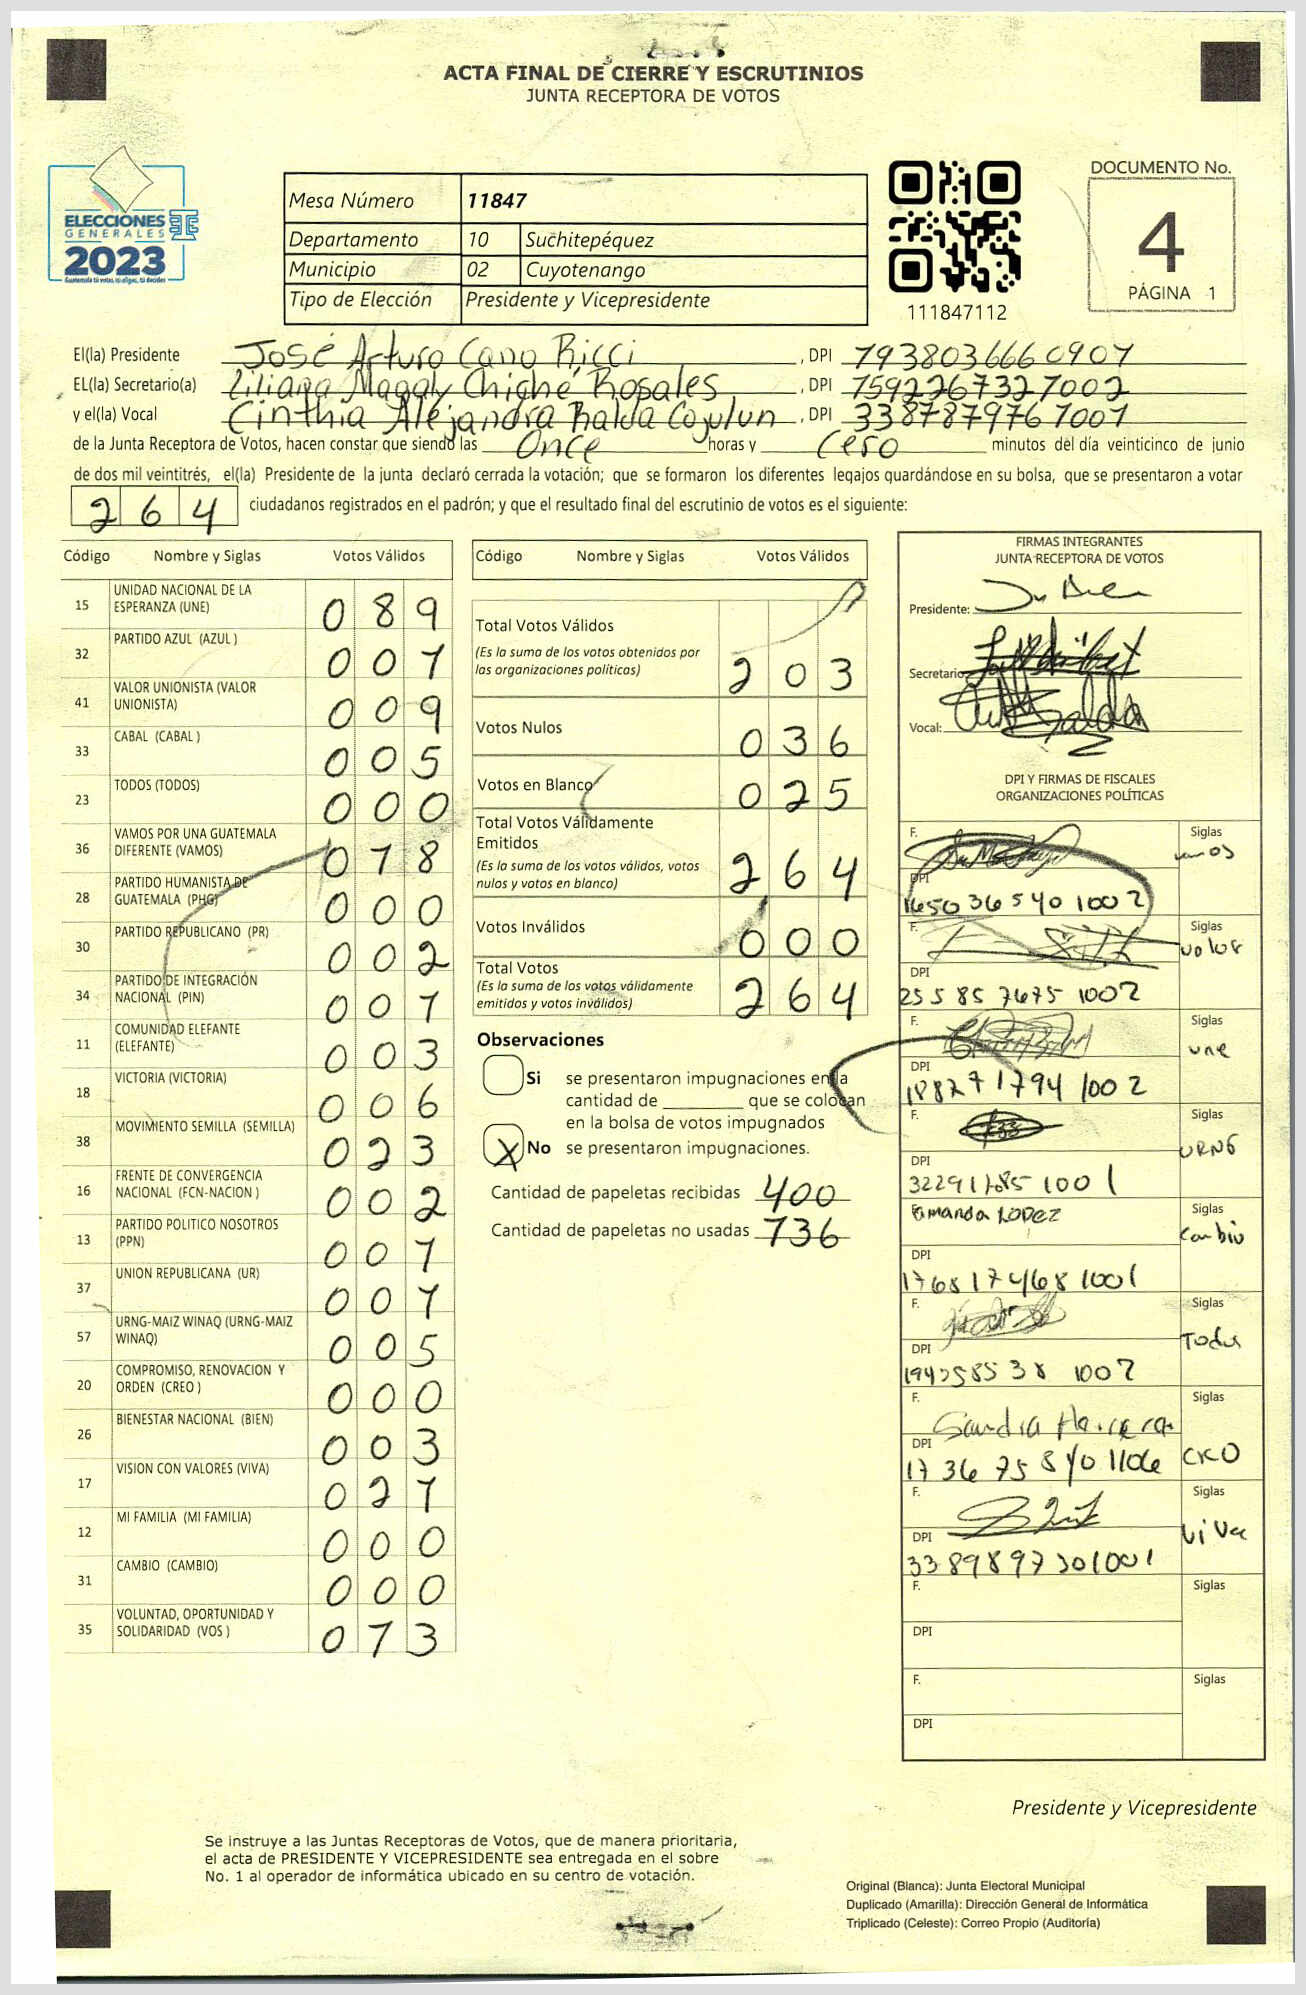 ACTA FINAL DE CIERRE Y ESCRUTINIOS
JUNTA RECEPTORA DE VOTOS
ELECCIONES
GENERALES
2023
Guatemala tú votas, tú eliges, tú decides
Mesa Número 11847
Departamento 10 Suchitepéquez
Municipio 02 Cuyotenango
Tipo de Elección Presidente y Vicepresidente
111847112
DOCUMENTO No.
4
PÁGINA 1
El(la) Presidente José Arturo Cano Ricci , DPI 1938036660901
EL(la) Secretario(a) Liliana Magaly Chiché Rosales , DPI 1592267321002
y el(la) Vocal Cinthia Alejandra Ralda Cojulun , DPI 3387879761001
de la Junta Receptora de Votos, hacen constar que siendo las Once horas y Cero minutos del día veinticinco de junio
de dos mil veintitrés, el(la) Presidente de la junta declaró cerrada la votación; que se formaron los diferentes legajos guardándose en su bolsa, que se presentaron a votar
264 ciudadanos registrados en el padrón; y que el resultado final del escrutinio de votos es el siguiente:
Código Nombre y Siglas Votos Válidos
15 UNIDAD NACIONAL DE LA ESPERANZA (UNE) 089
32 PARTIDO AZUL (AZUL ) 001
41 VALOR UNIONISTA (VALOR UNIONISTA) 009
33 CABAL (CABAL ) 005
23 TODOS (TODOS) 000
36 VAMOS POR UNA GUATEMALA DIFERENTE (VAMOS) 018
28 PARTIDO HUMANISTA DE GUATEMALA (PHG) 000
30 PARTIDO REPUBLICANO (PR) 002
34 PARTIDO DE INTEGRACIÓN NACIONAL (PIN) 001
11 COMUNIDAD ELEFANTE (ELEFANTE) 003
18 VICTORIA (VICTORIA) 006
38 MOVIMIENTO SEMILLA (SEMILLA) 023
16 FRENTE DE CONVERGENCIA NACIONAL (FCN-NACION ) 002
13 PARTIDO POLITICO NOSOTROS (PPN) 001
37 UNION REPUBLICANA (UR) 001
57 URNG-MAIZ WINAQ (URNG-MAIZ WINAQ) 005
20 COMPROMISO, RENOVACION Y ORDEN (CREO ) 000
26 BIENESTAR NACIONAL (BIEN) 003
17 VISION CON VALORES (VIVA) 021
12 MI FAMILIA (MI FAMILIA) 000
31 CAMBIO (CAMBIO) 000
35 VOLUNTAD, OPORTUNIDAD Y SOLIDARIDAD (VOS ) 013
Código Nombre y Siglas Votos Válidos
Total Votos Válidos 203
(Es la suma de los votos obtenidos por
las organizaciones políticas)
Votos Nulos 036
Votos en Blanco 025
Total Votos Válidamente
Emitidos 264
(Es la suma de los votos válidos, votos
nulos y votos en blanco)
Votos Inválidos 000
Total Votos 264
(Es la suma de los votos válidamente
emitidos y votos inválidos)
Observaciones
Si se presentaron impugnaciones en la
cantidad de ________ que se colocan
en la bolsa de votos impugnados
X No se presentaron impugnaciones.
Cantidad de papeletas recibidas 400
Cantidad de papeletas no usadas 136
FIRMAS INTEGRANTES
JUNTA RECEPTORA DE VOTOS
Presidente:
Secretario
Vocal:
DPI Y FIRMAS DE FISCALES
ORGANIZACIONES POLÍTICAS
F. Siglas vamos
DPI 1650365401002
F. Siglas valor
DPI 2558576751002
F. Siglas une
DPI 1882717941002
F. Siglas URNG
DPI
F. Amanda LOPEZ Siglas Cambio
DPI 1768174681001
F. Siglas Todos
DPI
F. Sandra Siglas CREO
DPI 1736758401106
F. Siglas Viva
DPI 3389897301001
F. Siglas
DPI
F. Siglas
DPI
Presidente y Vicepresidente
Se instruye a las Juntas Receptoras de Votos, que de manera prioritaria,
el acta de PRESIDENTE Y VICEPRESIDENTE sea entregada en el sobre
No. 1 al operador de informática ubicado en su centro de votación.
Original (Blanca): Junta Electoral Municipal
Duplicado (Amarilla): Dirección General de Informática
Triplicado (Celeste): Correo Propio (Auditoría)